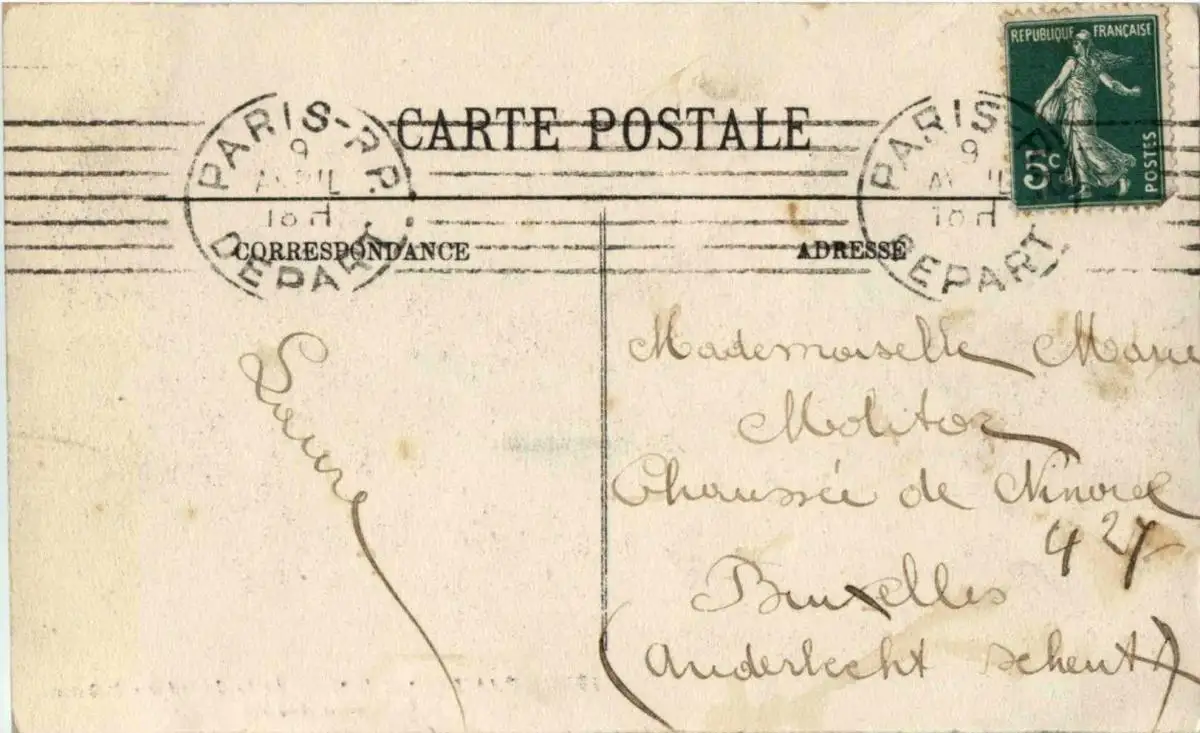 REPUBLIQUE FRANÇAISE
5c
POSTES
CARTE POSTALE
PARIS-R.P.
9
AVRIL
18 H
DEPART
PARIS-R.P.
9
AVRIL
18 H
DEPART
CORRESPONDANCE
ADRESSE
Laure
Mademoiselle Marie
Molitor
Chaussée de Ninove
427
Bruxelles
(Anderlecht Scheut)